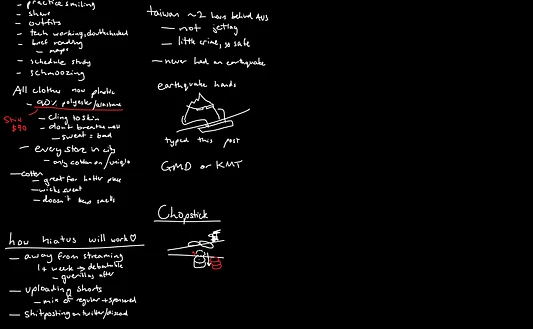 - practice smiling
- shave
- outfits
- tech working, double checked
- brief reading
- maps
- schedule study
- schmoozing
All clothes now plastic
- 90% polyester/elastane
Still $90
- cling to skin
- don't breathe well
- sweat = bad
- every store in city
- only cotton on/uniqlo
- cotton
- great for hotter place
- wicks sweat
- doesn't
how hiatus will work♡
- away from streaming
1+ week → debatable
- guerillas after
- uploading shorts
- mix of regular + sponsored
- Shitposting on twitter/discord
taiwan ~2 hours behind AUS
- not jetlag
- little crime, so safe
- never had an earthquake
earthquake hands
typed this post
GMD or KMT
Chopstick